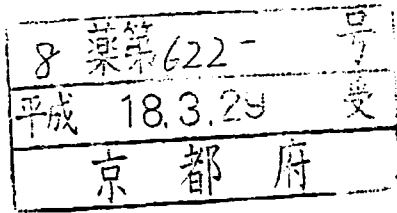 8 薬第622- 号
平成 18.3.29 受
京都府